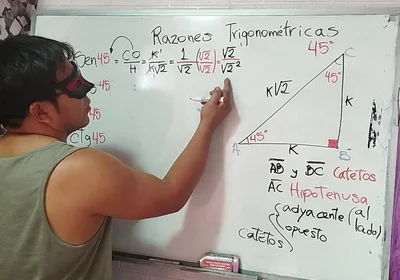 Razones Trigonométricas
Sen45 = CO/H = K/K√2 = 1/√2 (√2/√2) = √2/√2²
45
45
Ctg45
45°
C
45°
K√2
K
45°
A
K
B
AB y BC Catetos
AC Hipotenusa
Catetos { adyacente (al lado)
opuesto